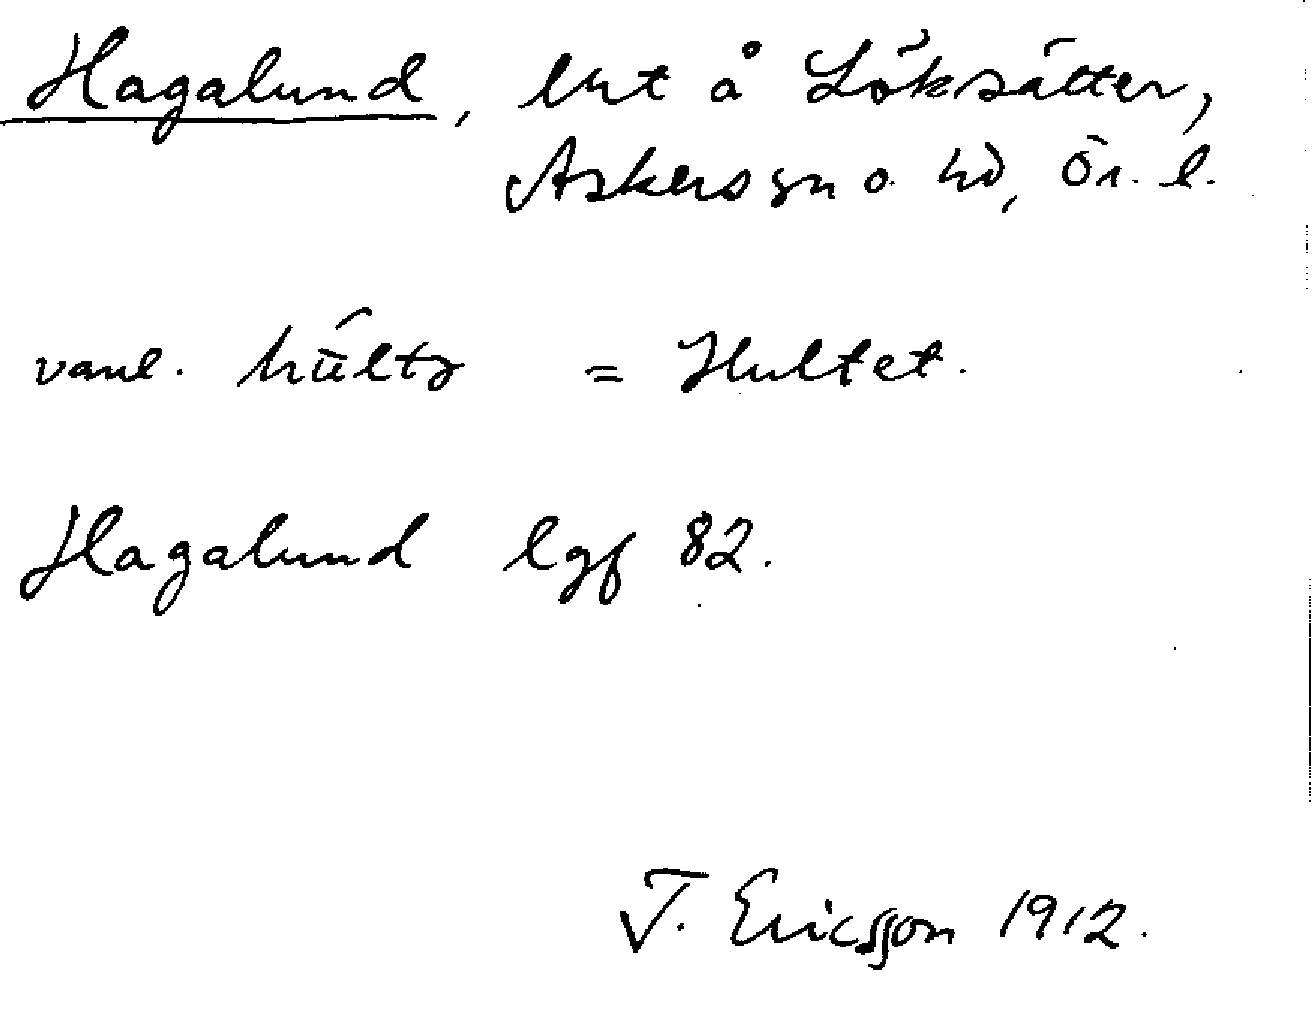 Hagalund, lht å Löksätter,
Askers sn o. hd, Ör. l.
vanl. = Hultet.
Hagalund lgf 82.
T. Ericsson 1912.